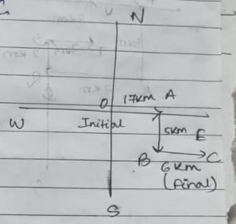 N
O 17km A
W Initial 5km E
B C
6km
(final)
S